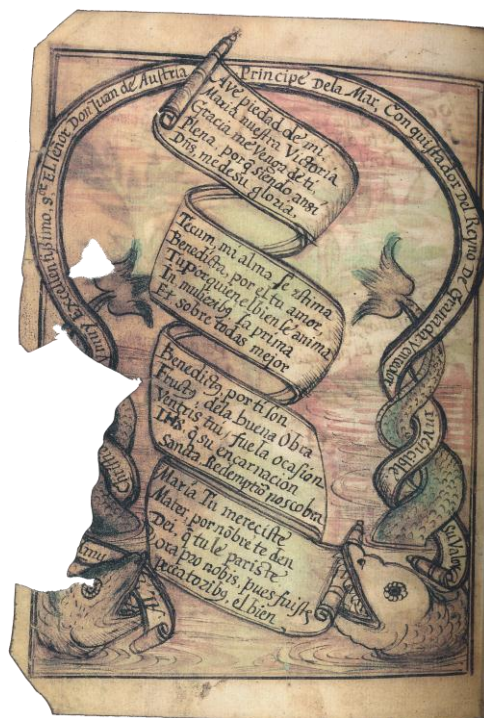 Muy Excelentissimo, s.or El señor Don Juan de Austria Principe Dela Mar, Conquistador Del Reyno De Granada, vencedor
Ave piedad de mi
Maria nuestra Victoria
Gracia me Venga de ti
Plena, por q̃ siendo ansi
Dñs, me de su gloria.
Tecum, mi alma se estima
Benedicta, por el tu amor
Tu por quien el bien se anima
In mulierib9 la prima
Et sobre todas mejor
Benedict9 por ti son
Fruct9, dela buena Obra
Ventris tui, fue la ocasion
IHS, q̃ su encarnacion
Sancta Redemptiõ nos cobra
Maria Tu mereciste
Mater, por nõbre te den
Dei, q̃ tu le pariste
Ora pro nobis, pues fuiste
Peccatorib9, el bien